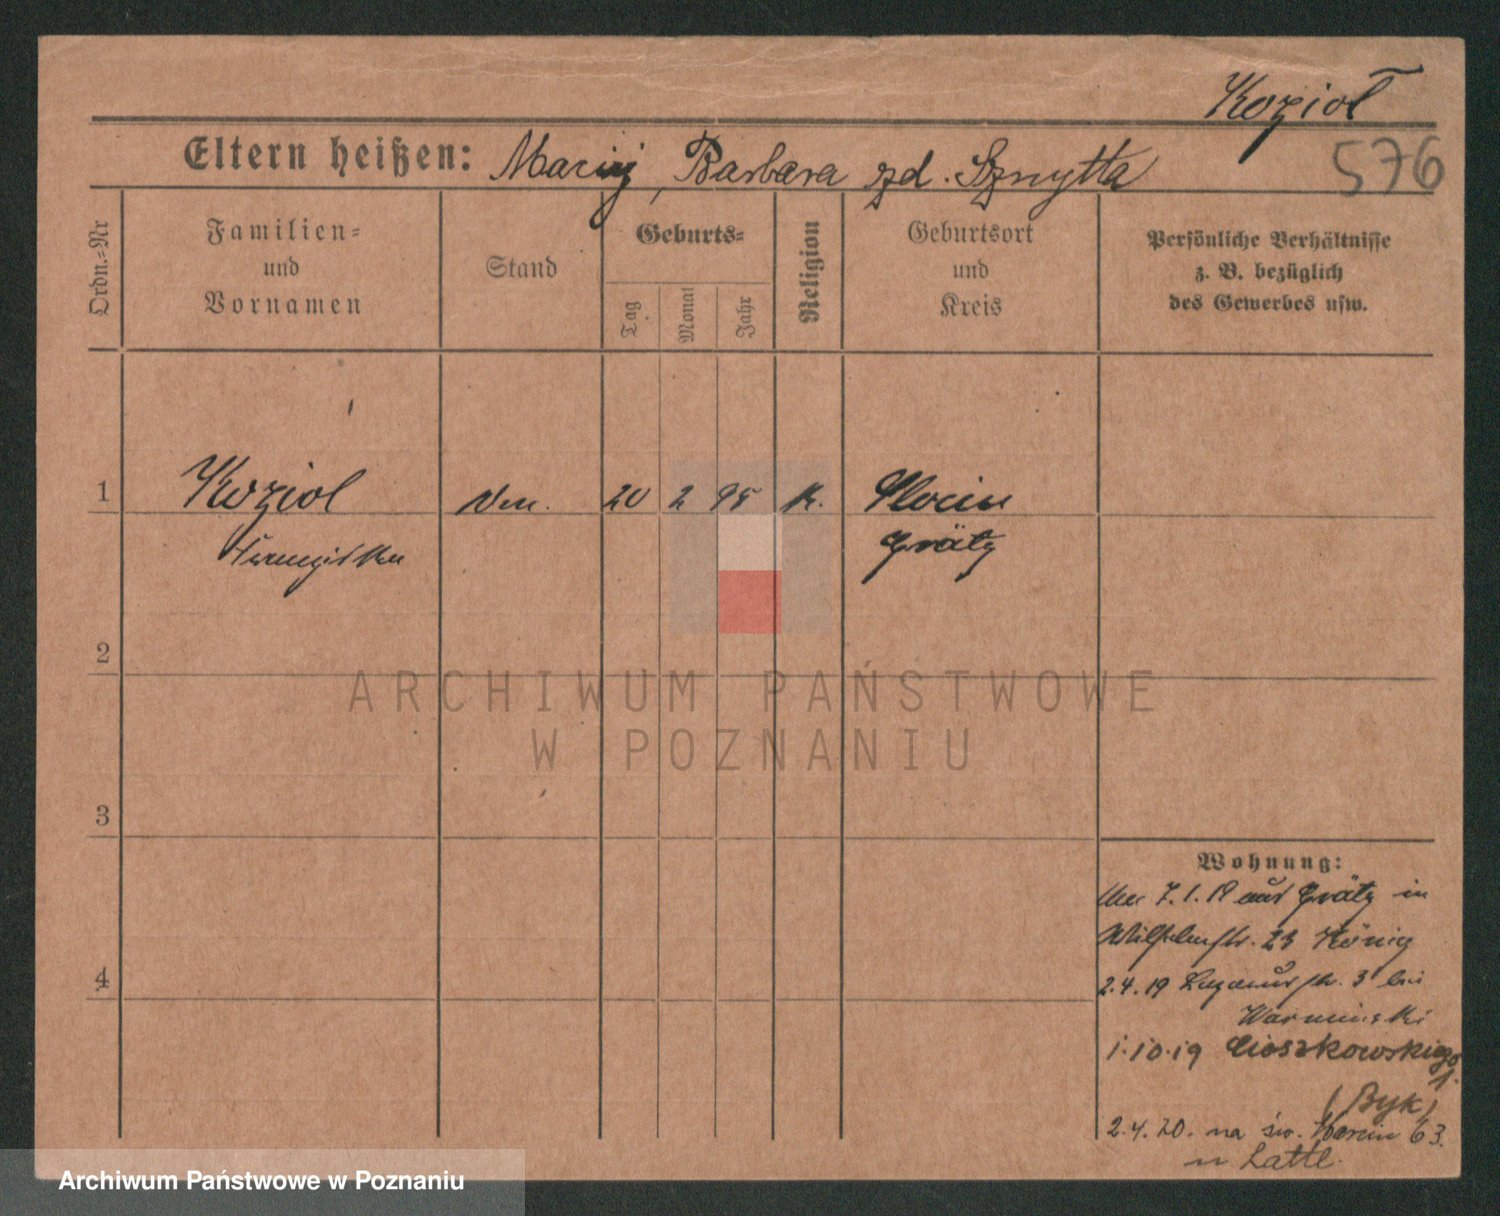 Kozioł
Eltern heißen: Maciej, Barbara zd. Sznytta
576
Ordn.-Nr
Familien-
und
Vornamen
Stand
Geburts-
Tag
Monat
Jahr
Religion
Geburtsort
und
Kreis
Persönliche Verhältnisse
z. B. bezüglich
des Gewerbes usw.
1
Koziol
20 2 95 K.
Franziska
Grätz
2
ARCHIWUM PAŃSTWOWE
W POZNANIU
3
Wohnung:
7.1.19 aus Grätz in
Wilhelmstr. 23 König
4
2.4.19 3 bei
Warminski
1.10.19 Cieszkowskiego
1.
(Byk)
2.4.20. na św. Marcin 63.
u Latte.
Archiwum Państwowe w Poznaniu